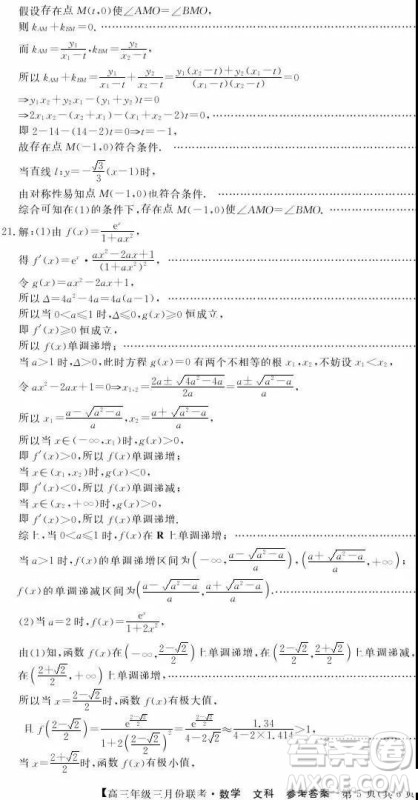 假设存在点 M(t,0)使∠AMO=∠BMO,
则 k_AM+k_BM=0.
而 k_AM=y₁/(x₁-t),k_BM=y₂/(x₂-t),
所以 k_AM+k_BM=y₁/(x₁-t)+y₂/(x₂-t)=(y₁(x₂-t)+y₂(x₁-t))/((x₁-t)(x₂-t))=0
⇒y₁x₂+y₂x₁-(y₁+y₂)t=0
⇒2x₁x₂-(x₂+x₁)-(x₁+x₂-2)t=0,
即 2-14-(14-2)t=0⇒t=-1,
故存在点 M(-1,0)符合条件.
当直线 l:y=-√3/3(x-1)时,
由对称性易知点 M(-1,0)也符合条件.
综合可知在(1)的条件下,存在点 M(-1,0)使∠AMO=∠BMO.
21.解:(1)由 f(x)=eˣ/(1+ax²),
得 f′(x)=eˣ·(ax²-2ax+1)/(1+ax²)²,
令 g(x)=ax²-2ax+1,
所以 Δ=4a²-4a=4a(a-1),
所以当 0<a≤1 时,Δ≤0,g(x)≥0 恒成立,
即 f′(x)≥0 恒成立,
所以 f(x)单调递增;
当 a>1 时,Δ>0,此时方程 g(x)=0 有两个不相等的根 x₁,x₂,不妨设 x₁<x₂,
令 ax²-2ax+1=0⇒x₁,₂=(2a±√(4a²-4a))/2a=(a±√(a²-a))/a,
所以 x₁=(a-√(a²-a))/a,x₂=(a+√(a²-a))/a,
所以当 x∈(-∞,x₁)时,g(x)>0,
即 f′(x)>0,所以 f(x)单调递增;
当 x∈(x₁,x₂)时,g(x)<0,
即 f′(x)<0,所以 f(x)单调递减;
当 x∈(x₂,+∞)时,g(x)>0,
即 f′(x)>0,所以 f(x)单调递增.
综上,当 0<a≤1 时,f(x)在 R 上单调递增;
当 a>1 时,f(x)的单调递增区间为(-∞,(a-√(a²-a))/a),((a+√(a²-a))/a,+∞);
f(x)的单调递减区间为((a-√(a²-a))/a,(a+√(a²-a))/a).
(2)当 a=2 时,f(x)=eˣ/(1+2x²),
由(1)知,函数 f(x)在(-∞,(2-√2)/2)上单调递增,在((2-√2)/2,(2+√2)/2)上单调递减,
在((2+√2)/2,+∞)上单调递增,
所以当 x=(2-√2)/2时,函数 f(x)有极大值,
且 f((2-√2)/2)=e^((2-√2)/2)/(1+2((2-√2)/2)²)=e^((2-√2)/2)/(4-2√2)≈1.34/(4-2×1.414)>1,
当 x=(2+√2)/2时,函数 f(x)有极小值,
【高三年级三月份联考·数学 文科 参考答案 第 5 页(共 6 页)